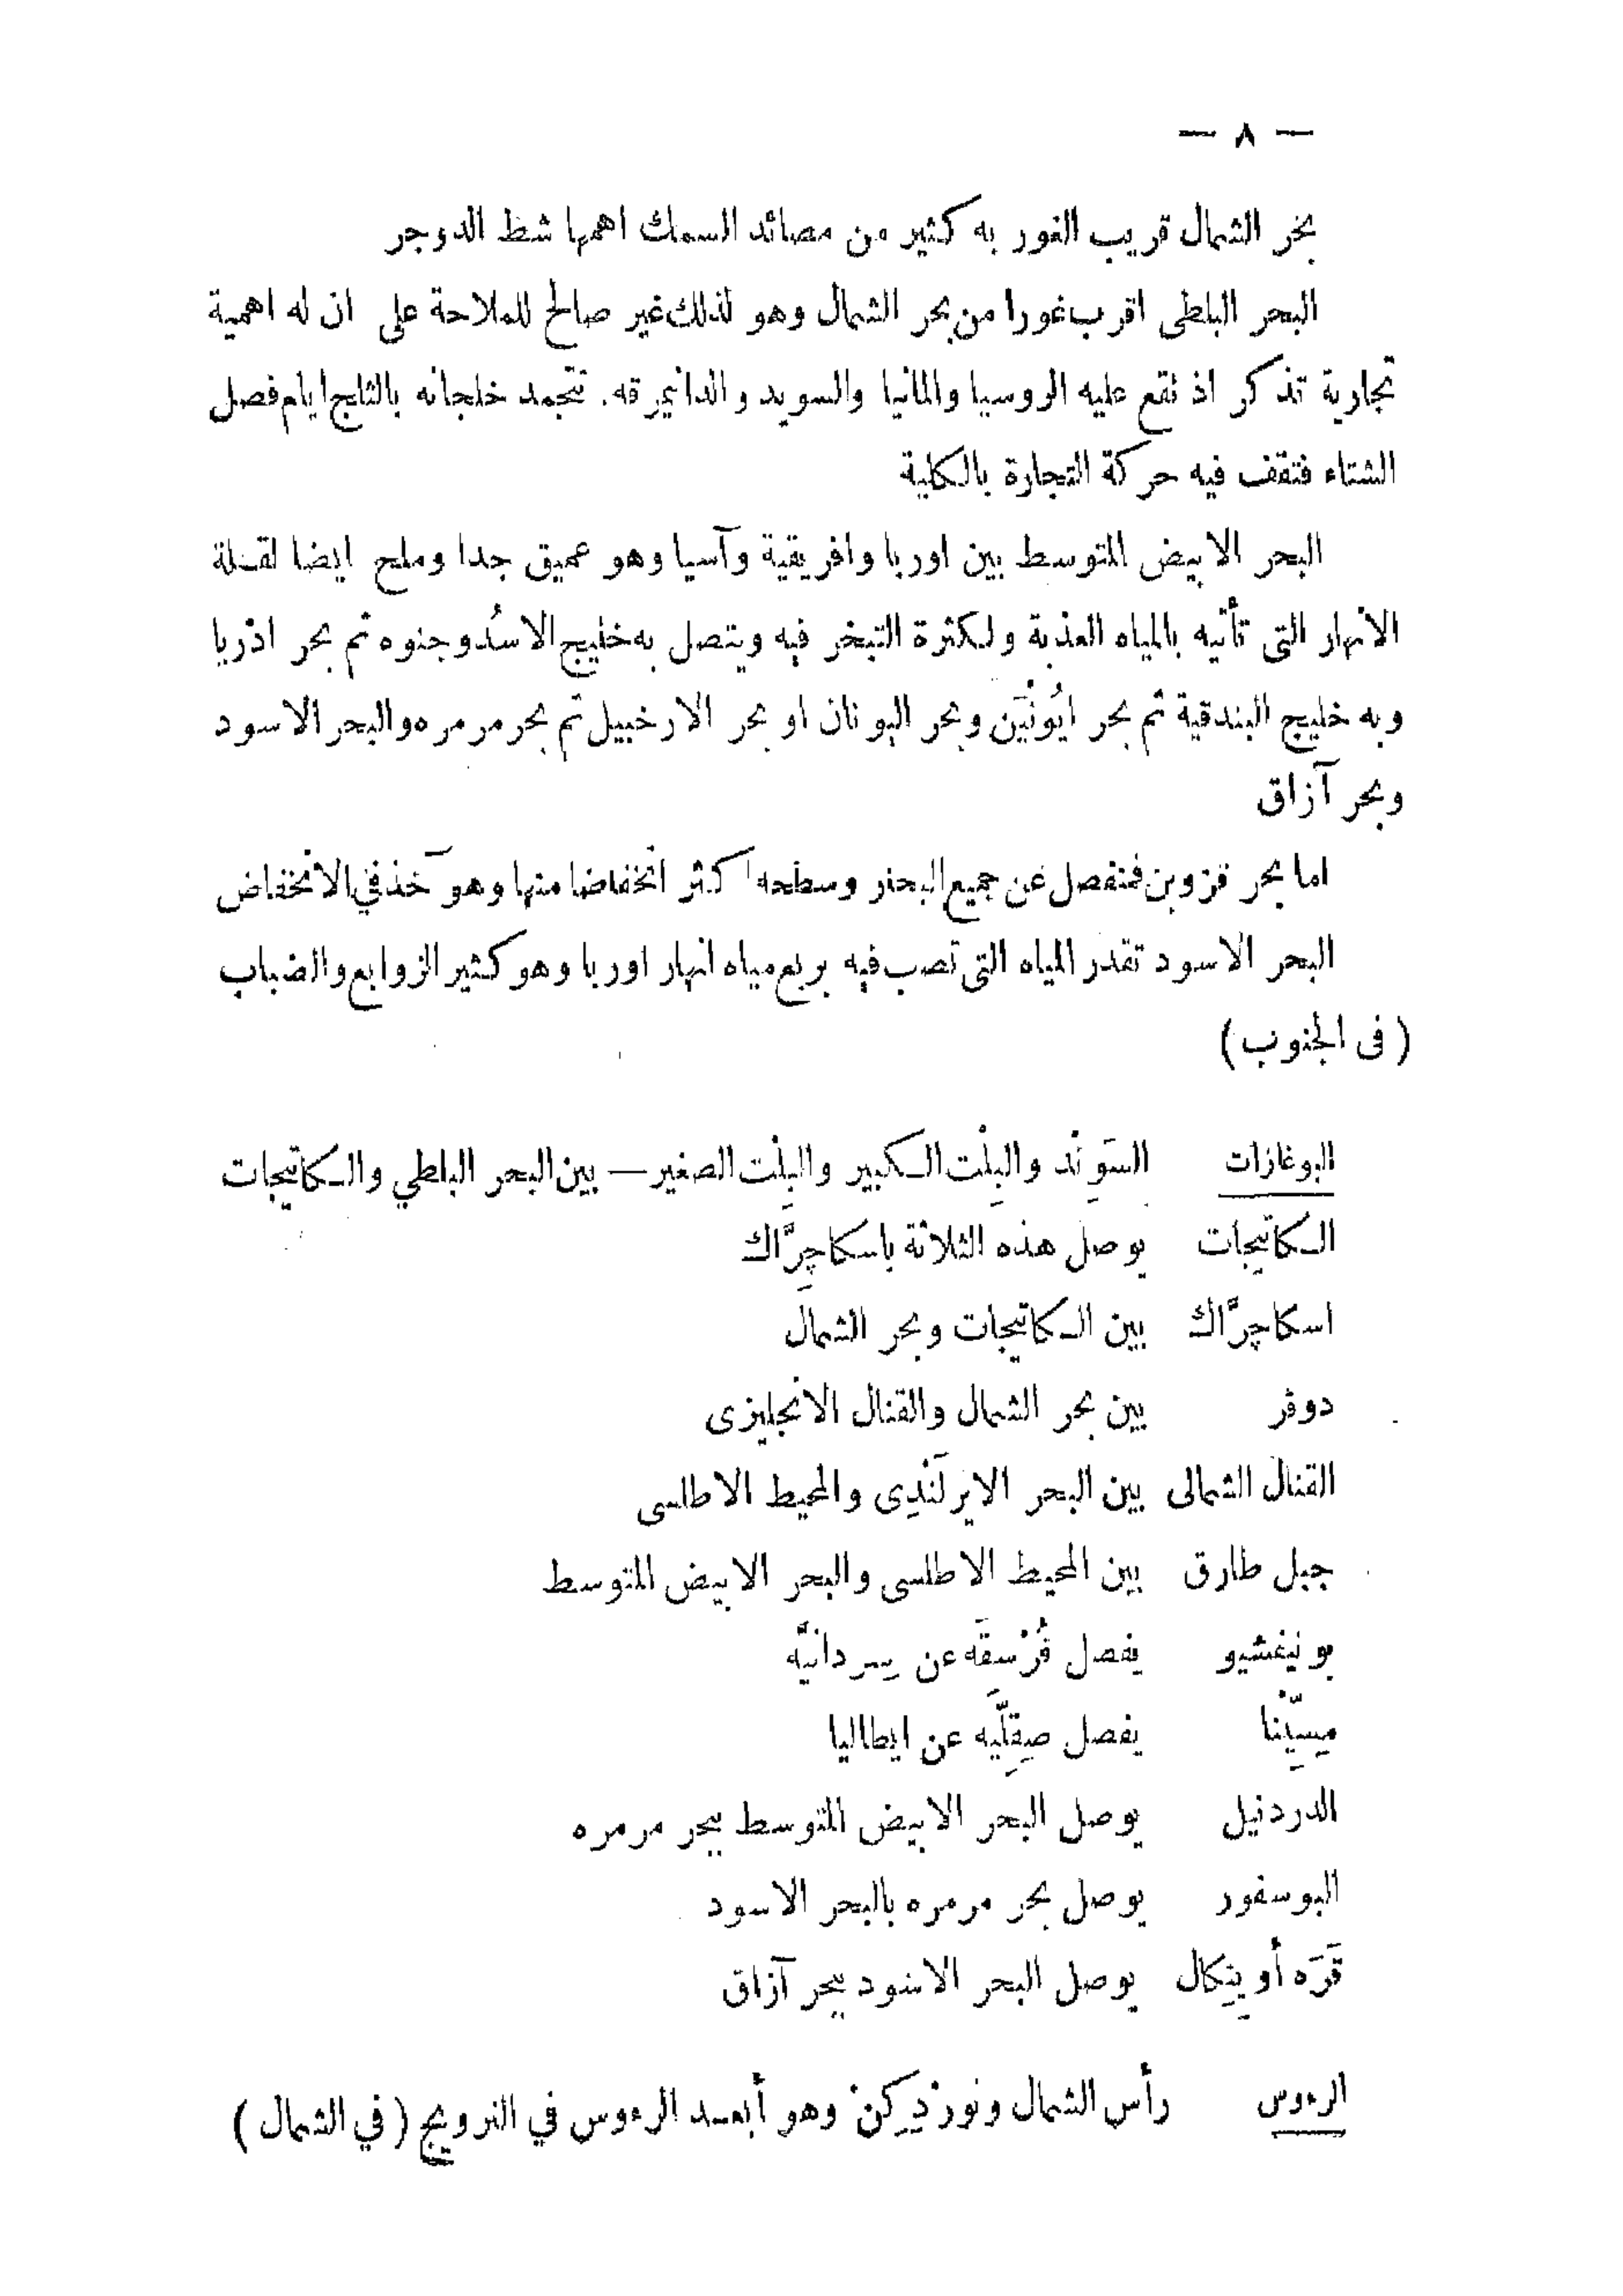 — ٨ —
بحر الشمال قريب الغور به كثير من مصائد السمك اهمها شط الدوجر
البحر البلطى اقرب غورا من بحر الشمال وهو لذلك غير صالح للملاحة على ان له اهمية
تجارية تذكر اذ تقع عليه الروسيا والمانيا والسويد والدانيمرقه. تتجمد خلجانه بالثلج ايام فصل
الشتاء فتقف فيه حركة التجارة بالكلية
البحر الابيض المتوسط بين اوربا وافريقية وآسيا وهو عميق جدا وملح ايضا لقلة
الانهار التى تأتيه بالمياه العذبة ولكثرة التبخر فيه ويتصل به خليج الاسُد وجنوه ثم بحر اذريا
وبه خليج البندقية ثم بحر ايُونْيَن وبحر اليونان او بحر الارخبيل ثم بحر مرمره والبحر الاسود
وبحر آزاق
اما بحر قزوين فمنفصل عن جميع البحار وسطحه اكثر انخفاضا منها وهو آخذ في الانخفاض
البحر الاسود تقدر المياه التى تصب فيه بربع مياه انهار اوربا وهو كثير الزوابع والضباب
( فى الجنوب )
البوغازات السَوِنْد والبِلْت الكبير والبِلْت الصغير — بين البحر البلطي والكاتيجات
الكاتيجات يوصل هذه الثلاثة باسكاچِرَّاك
اسكاچرَّاك بين الكاتيجات وبحر الشمال
دوفر بين بحر الشمال والقنال الانجليزى
القنال الشمالى بين البحر الايرلَنْدِى والمحيط الاطلسى
جبل طارق بين المحيط الاطلسى والبحر الابيض المتوسط
بونيغشيو يفصل قُرْسِقَه عن سِردانيَّه
مِسِّيْنا يفصل صِقِلّيَه عن ايطاليا
الدردنيل يوصل البحر الابيض المتوسط ببحر مرمره
البوسفور يوصل بحر مرمره بالبحر الاسود
قَرَه أو يِنِكال يوصل البحر الاسود ببحر آزاق
الرءوس رأس الشمال ونورْدِكِنْ وهو أبعد الرءوس في النرويج ( في الشمال )